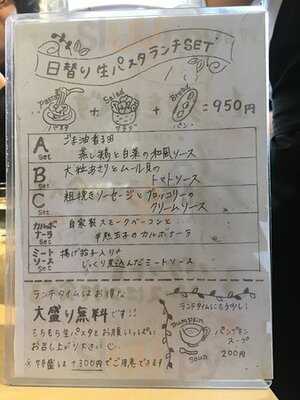 日替り生パスタランチSET
Pasta パスタ + Salad サラダ + Bread パン = 950円
A set ごま油香る
蒸し鶏と白菜の和風ソース
B set 大粒あさりとムール貝の
トマトソース
C set 粗挽きソーセージとブロッコリーの
クリームソース
カルボナーラ set 自家製スモークベーコンと
半熟玉子のカルボナーラ
ミートソース set 揚げ茄子入り
じっくり煮込んだミートソース
ランチタイムはお得な
大盛り無料です!!
もちもち生パスタをお腹いっぱい
お召し上がり下さい
は+300円でご用意できます
ランチタイムにもうれしい
Pumpkin soup
パンプキン
スープ
200円